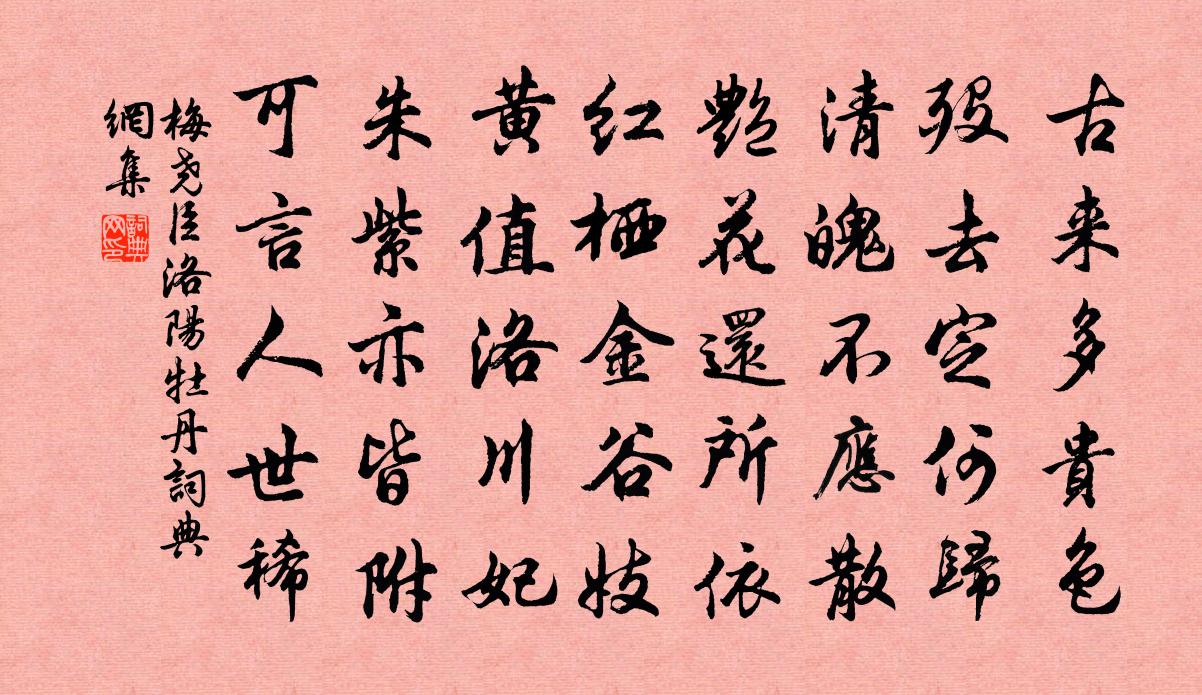 古来多貴色
歿去定何歸
清魄不應散
艷花還所依
红栖金谷妓
黄值洛川妃
朱紫亦皆附
可言人世稀
梅尧臣洛陽牡丹詞典
網集
詞典
网印